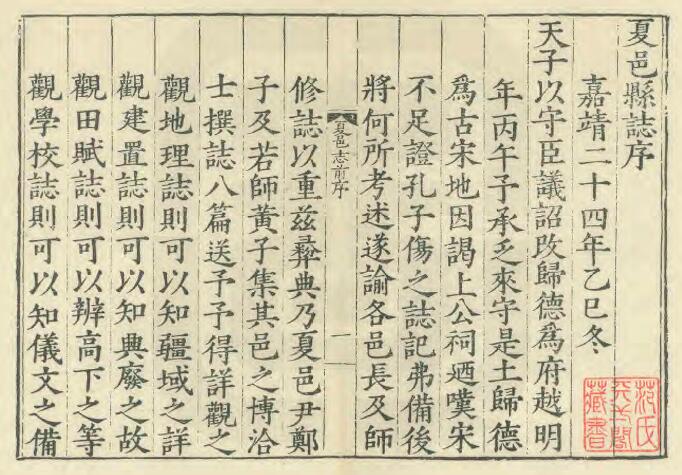 夏邑縣誌序
嘉靖二十四年乙巳冬
天子以守臣議詔攺歸德爲府越明
年丙午予承乏來守是土歸德
爲古宋地因謁上公祠迺嘆宋
不足證孔子傷之誌記弗備後
將何所考述遂諭各邑長及師
夏邑志前序
一
修誌以重兹彝典乃夏邑尹鄭
子及若師黃子集其邑之博洽
士撰誌八篇送予予得詳觀之
觀地理誌則可以知疆域之詳
觀建置誌則可以知典廢之故
觀田賦誌則可以辨高下之等
觀學校誌則可以知儀文之備
范氏
天一閣
藏書